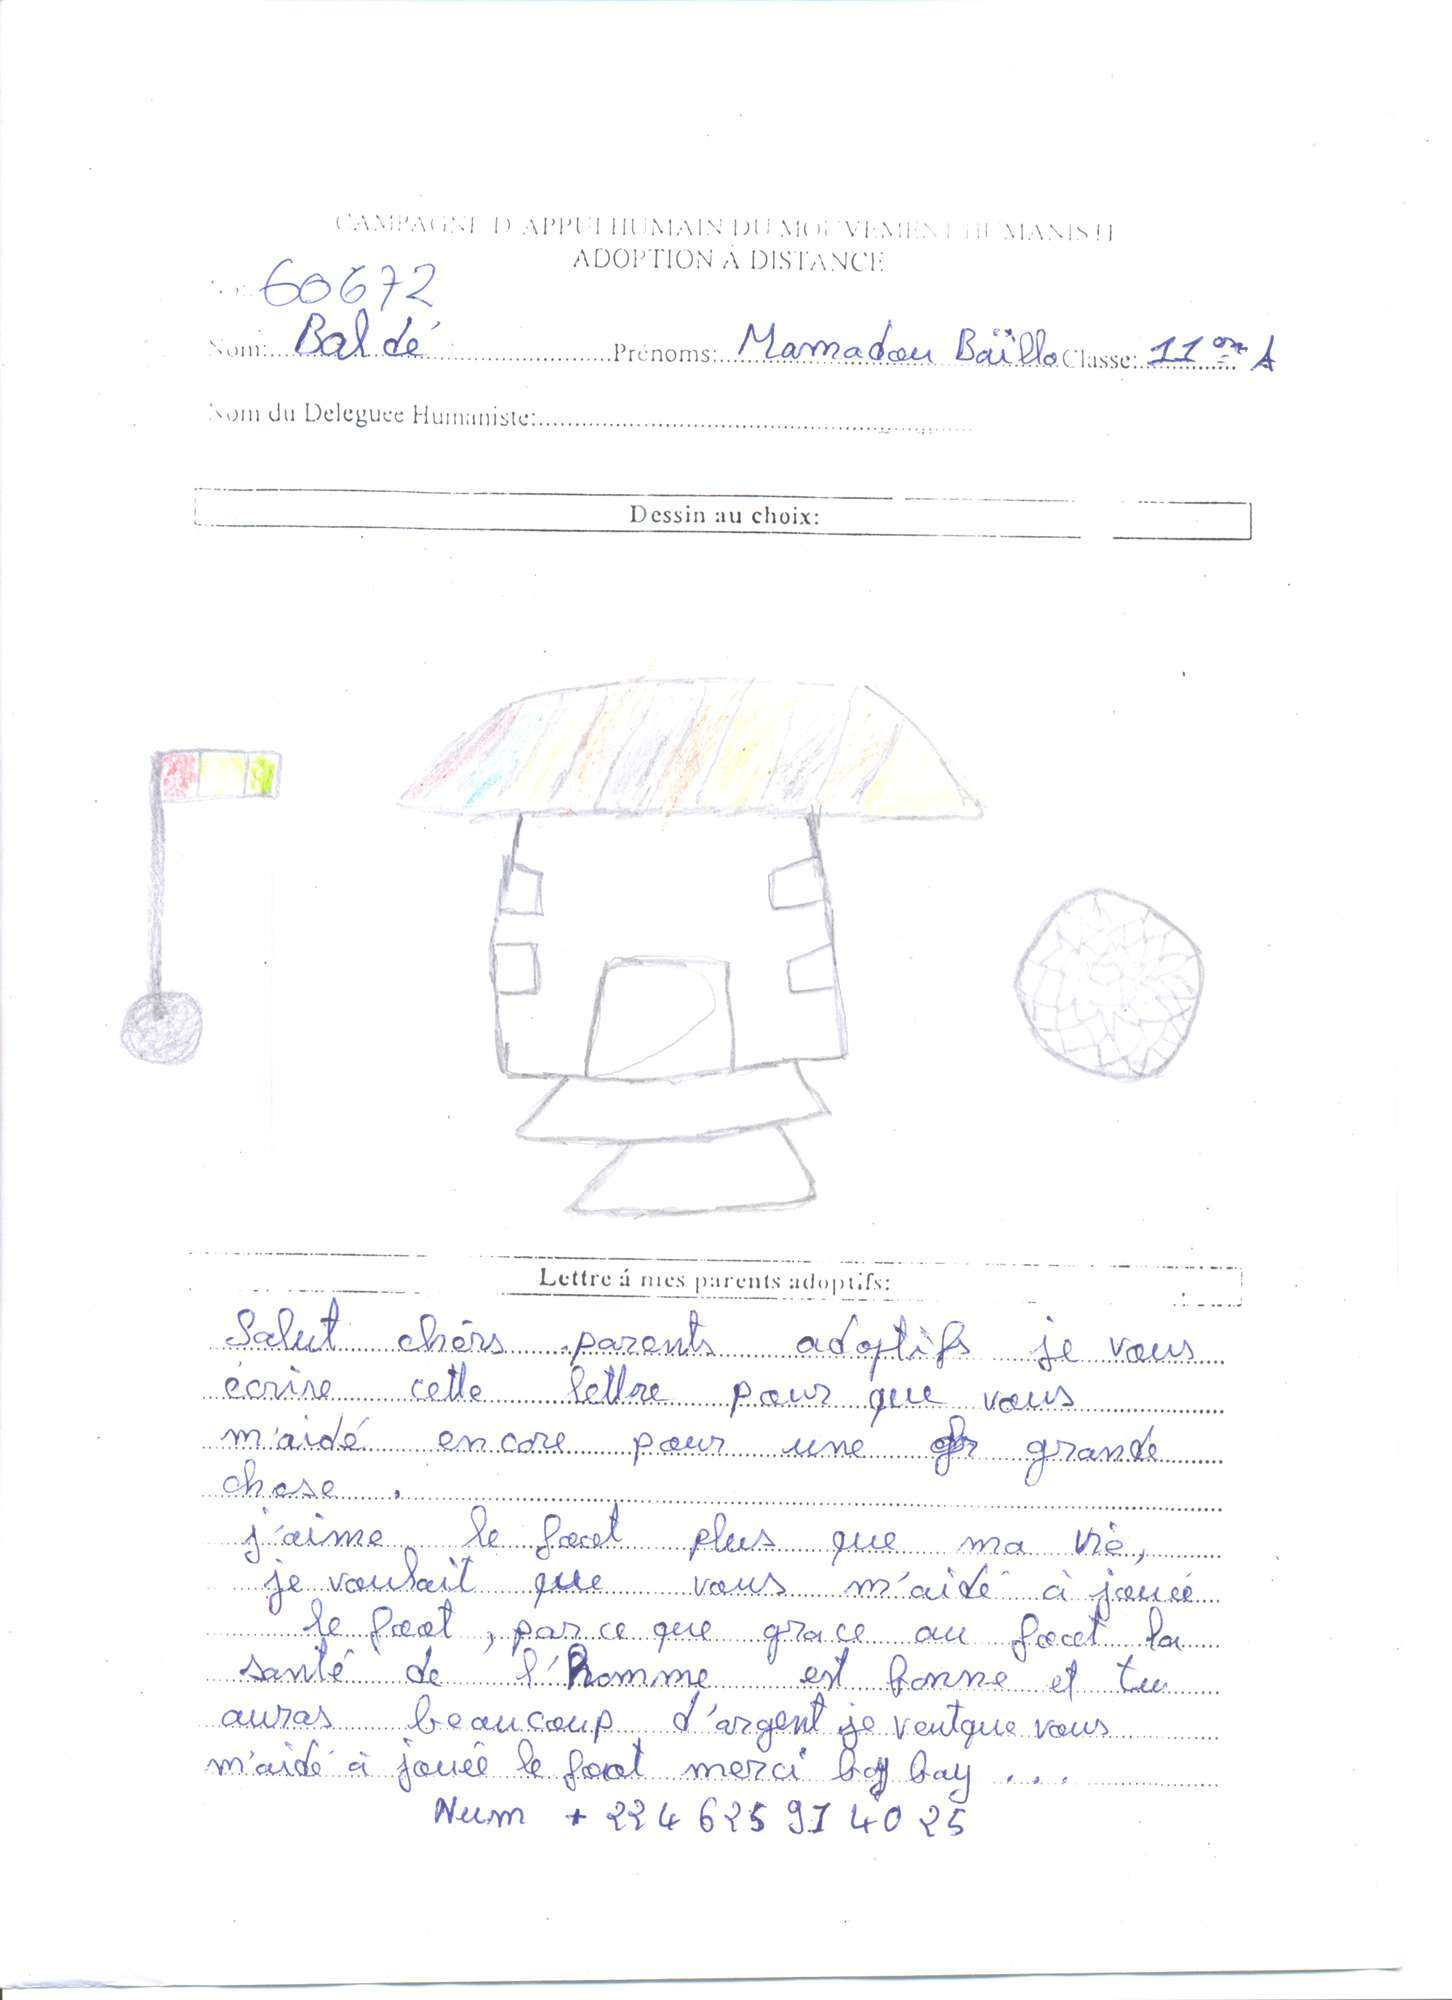 CAMPAGNE D'APPUI HUMAIN DU MOUVEMENT HUMANISTE
ADOPTION À DISTANCE
No: 60672
Nom: Baldé Prénoms: Mamadou Baïllo Classe: 11em A
Nom du Deleguee Humaniste:
Dessin au choix:
Lettre á mes parents adoptifs:
Salut chèrs parents adoptifs je vous
écrire cette lettre pour que vous
m'aidé encore pour une grande
chose .
j'aime le foot plus que ma vie,
je voulait que vous m'aidé à jouéé
le foot, parce que grace au foot la
santé de l'homme est bonne et tu
auras beaucoup d'argent je veut que vous
m'aidé à jouéé le foot merci bay bay ...
Num + 224 625 97 40 25